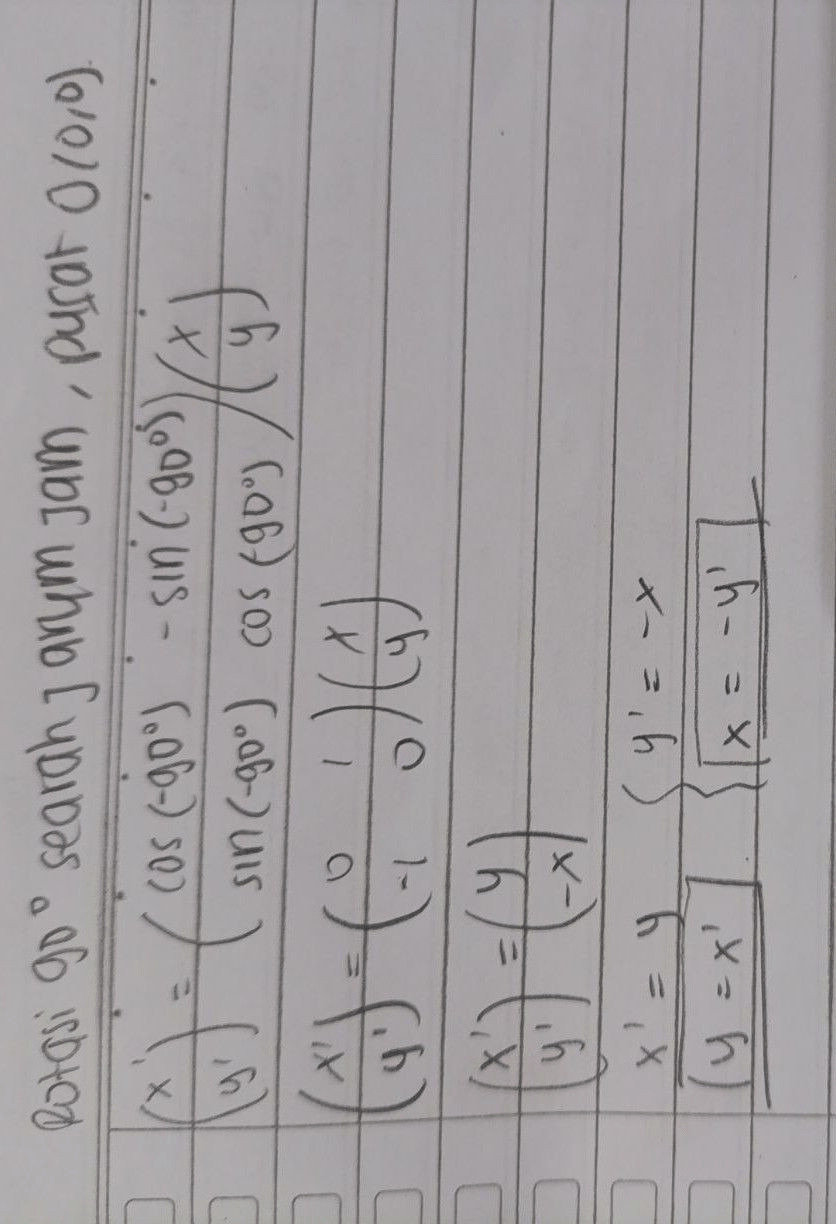 Rotasi 90° searah jarum jam, pusat O(0,0).
(x') = (cos(-90°) - sin(-90°))(x)
(y') (sin(-90°) cos(-90°))(y)
(x') = (0 1)(x)
(y') (-1 0)(y)
(x') = (y)
(y') (-x)
x' = y y' = -x
y = x' x = -y'